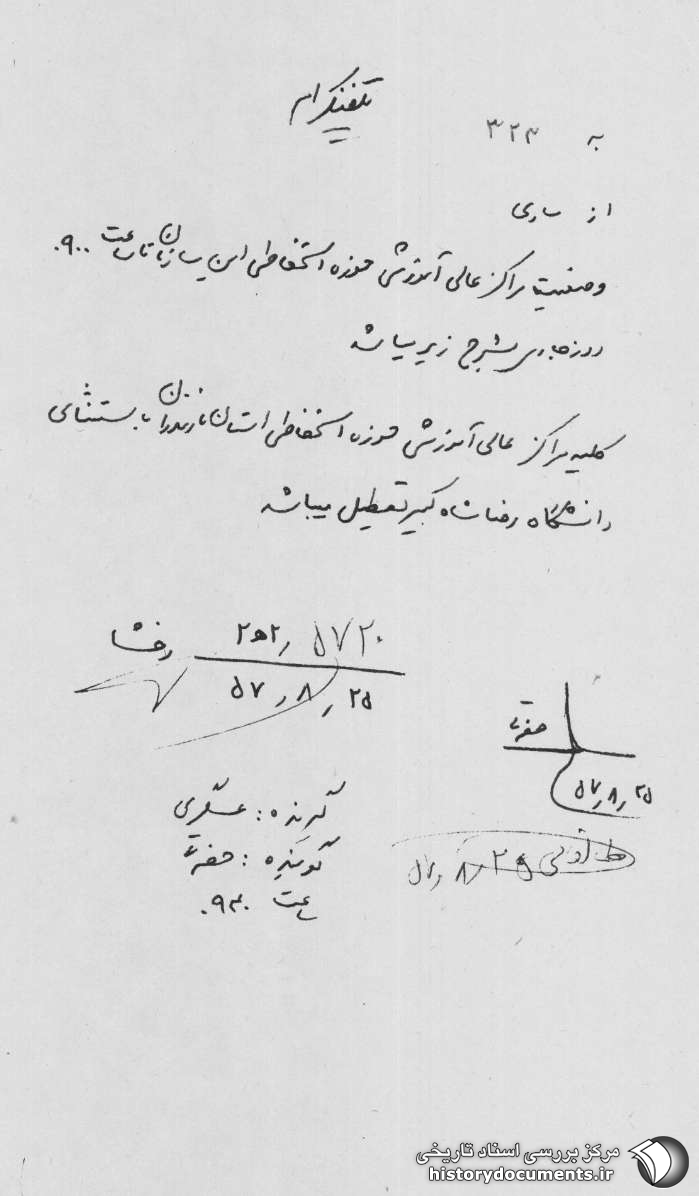 تلفنگرام
به ۳۲۳
از ساری
وضعیت مراکز عالی آموزشی حوزه استحفاظی این سازمان تا ساعت ۰۹۰۰
روز جاری بشرح زیر میباشد
کلیه مراکز عالی آموزشی حوزه استحفاظی استان مازندران باستثنای
دانشگاه رضا شاه کبیر تعطیل میباشد
۵۷۲۰ / ۲ﻫ۲ رخشا
۲۵ / ۸ / ۵۷
حضرتی
۲۵ / ۸ / ۵۷
گیرنده : عسگری
گوینده : حضرتی
ساعت ۰۹۳۰
۲۵ / ۸ / ۵۷
مرکز بررسی اسناد تاریخی
historydocuments.ir